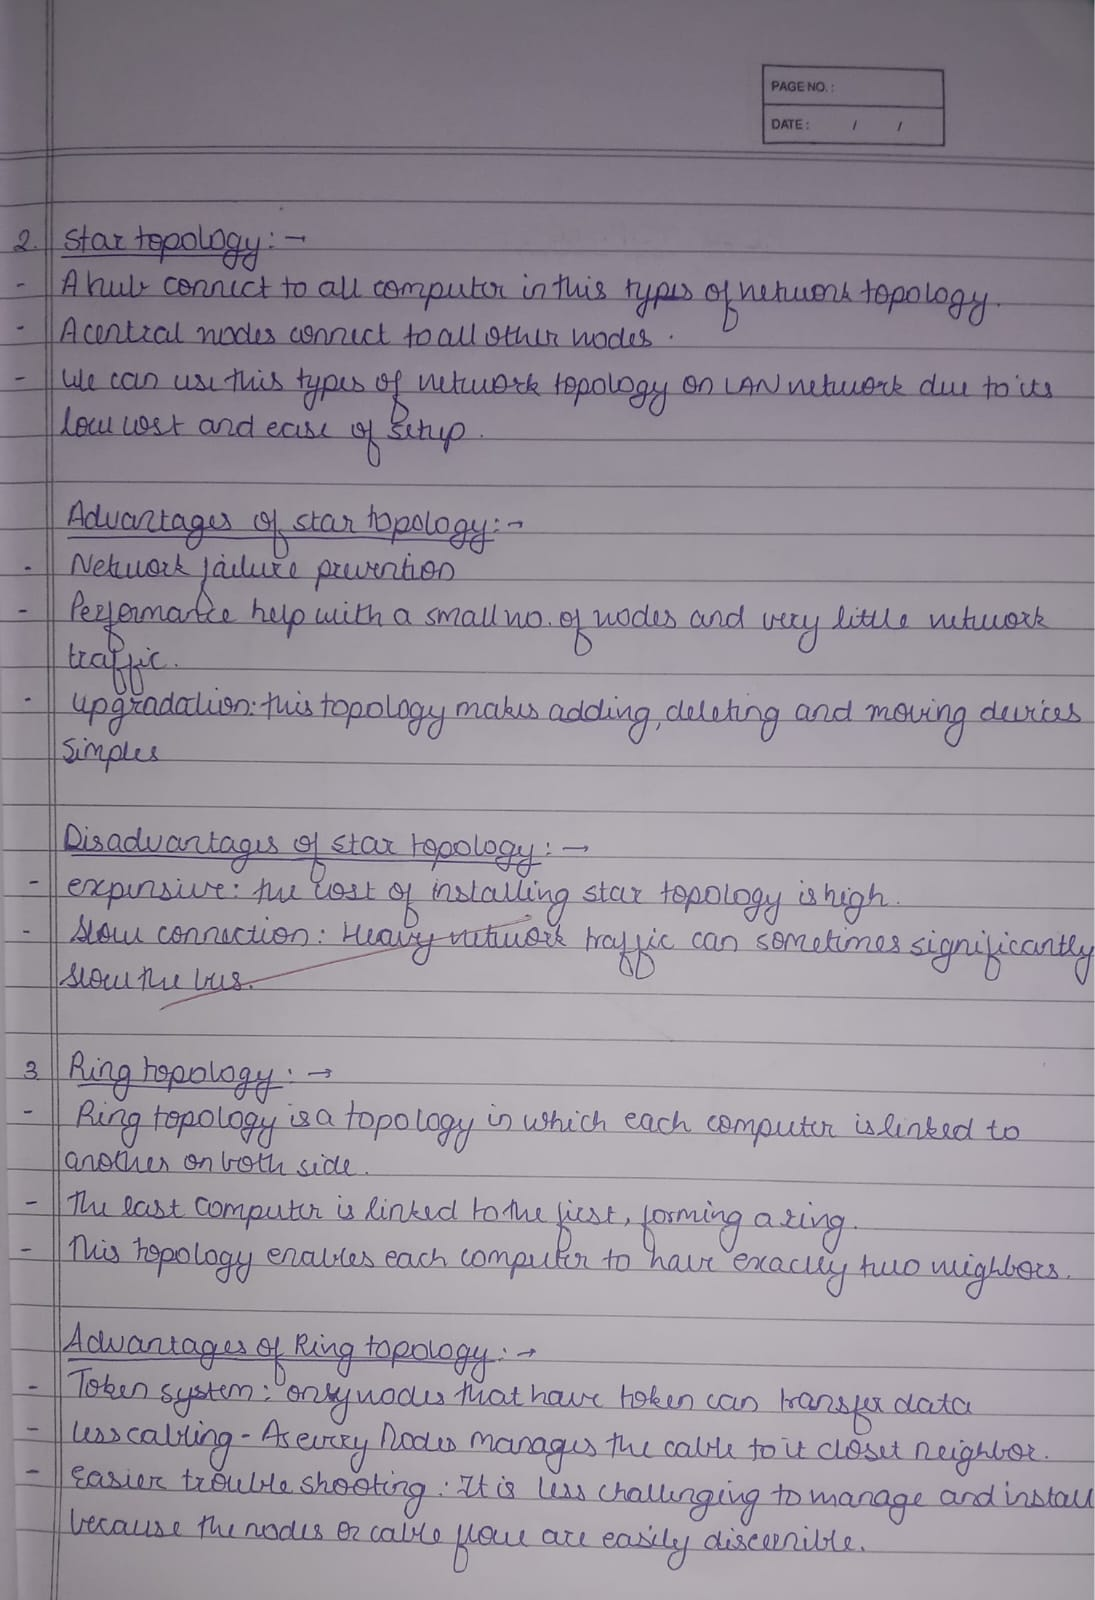 PAGE NO. :
DATE : / /
2. Star topology : →
- A hub connect to all computer in this types of network topology.
- A central nodes connect to all other nodes .
- We can use this types of network topology on LAN network due to its
low cost and ease of setup.
Advantages of star topology : →
- Network failure prevention
- Performance help with a small no. of nodes and very little network
traffic.
- upgradation : this topology makes adding, deleting and moving devices
simples
Disadvantages of star topology : →
- expensive : the cost of installing star topology is high.
- Slow connection : Heavy network traffic can sometimes significantly
slow the bus.
3 Ring topology : →
- Ring topology is a topology in which each computer is linked to
another on both side.
- The last computer is linked to the first, forming a ring.
- This topology enables each computer to have exactly two neighbors.
Advantages of Ring topology : →
- Token system : only nodes that have token can transfer data
- Less cabling - As every nodes manages the cable to it closet neighbor.
- Easier trouble shooting : It is less challenging to manage and install
because the nodes or cable flow are easily discernible.